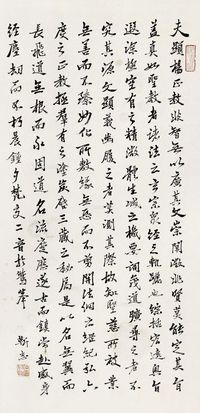 夫顯揚正教非智無以廣其文崇闡微言非賢莫能定其旨
蓋真如聖教者諸法之玄宗眾經之軌躅也綜括宏遠奧旨
遐深極空有之精微體生滅之機要詞茂道曠尋之者不
究其源文顯義幽履之者莫測其際故知聖慈所被業
無善而不臻妙化所敷緣無惡而不剪開法網之綱紀弘六
度之正教拯群有之塗炭啟三藏之秘扃是以名無翼而
長飛道無根而永固道名流慶歷遂古而鎮常赴感身
經塵劫而不朽晨鐘夕梵交二音於鷲峰